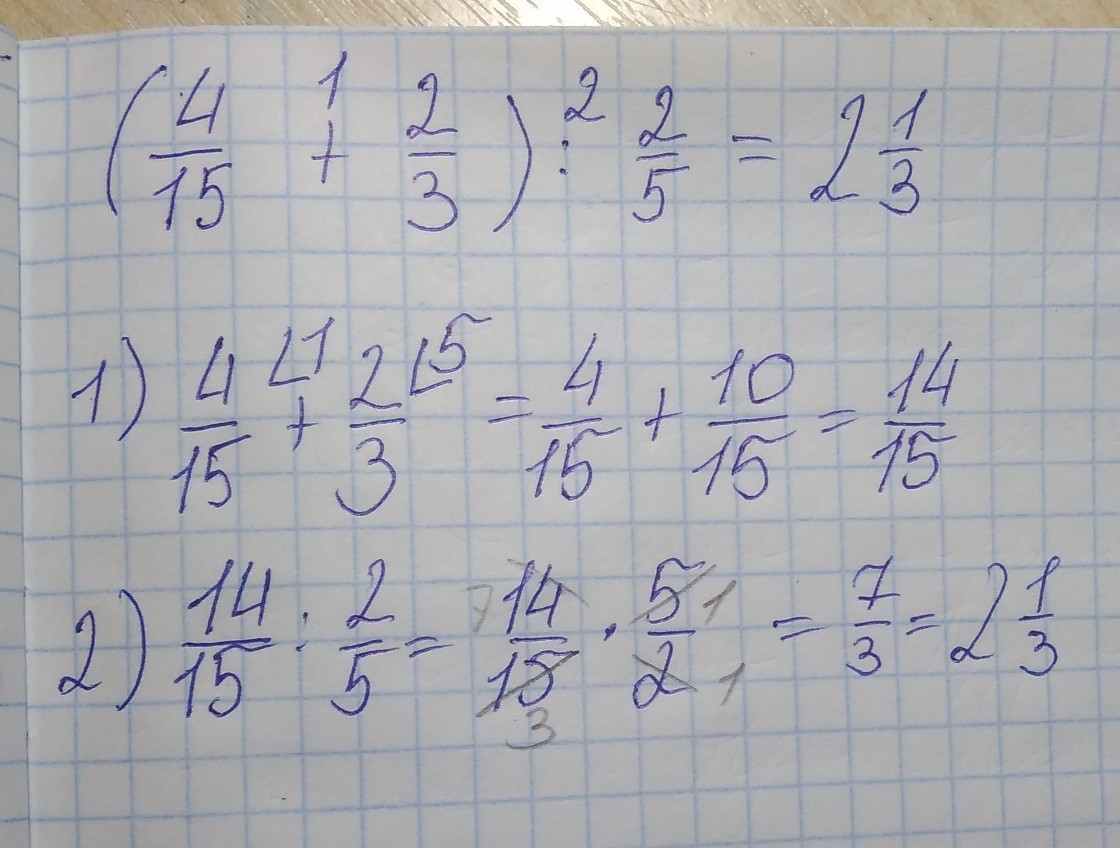 (4/15 +¹ 2/3) :² 2/5 = 2 1/3
1) 4/15 ∠1 + 2/3 ∠5 = 4/15 + 10/15 = 14/15
2) 14/15 : 2/5 = 7 14/15 3 · 5/2 1 1 = 7/3 = 2 1/3